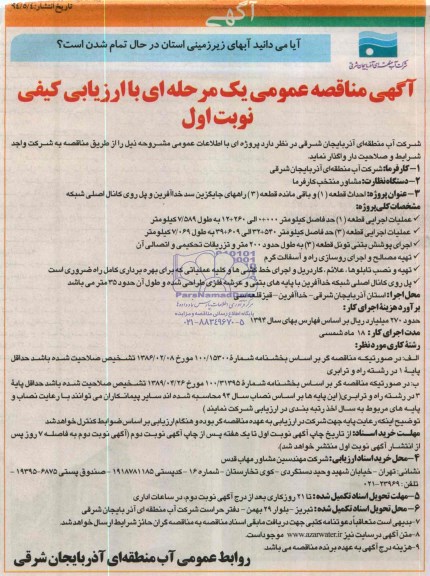 تاریخ انتشار:
آگهی
آیا می دانید آبهای زیرزمینی استان در حال تمام شدن است؟
شرکت آب منطقه‌ای آذربایجان شرقی
آگهی مناقصه عمومی یک مرحله ای با ارزیابی کیفی
نوبت اول
شرکت آب منطقه‌ای آذربایجان شرقی در نظر دارد پروژه ای با اطلاعات عمومی مشروحه ذیل را از طریق مناقصه به شرکت واجد
شرایط و صلاحیت دار واگذار نماید
۱- کارفرما: شرکت آب منطقه‌ای آذربایجان شرقی
۲- دستگاه نظارت: مشاور منتخب کارفرما
۳- عنوان پروژه: احداث قطعه (۱) و باقی مانده قطعه (۳) راههای جایگزین سد خداآفرین و پل روی کانال اصلی شبکه
مشخصات کلی پروژه:
✓ عملیات اجرایی قطعه (۱) حدفاصل کیلومتر ۰+۰۰۰ الی ۱۲+۲۶۰ به طول ۷/۵۸۹ کیلومتر
✓ عملیات اجرایی قطعه (۳) حدفاصل کیلومتر ۳۲+۵۳۰ الی ۳۹+۶۰۹ به طول ۷/۰۶۹ کیلومتر
✓ اجرای پوشش بتنی تونل قطعه (۳) به طول حدود ۲۰۰ متر و تزریقات تحکیمی و اتصالی آن
✓ تهیه مصالح و اجرای روسازی راه و آسفالت گرم
✓ تهیه و نصب تابلوها، علائم، گاردریل و اجرای خط کشی ها و کلیه عملیاتی که برای بهره برداری کامل راه ضروری است
✓ پل روی کانال اصلی شبکه خداآفرین با پایه های بتنی و عرشه فلزی طراحی شده و طول آن حدود ۳۵ متر می باشد
محل اجرا: استان آذربایجان شرقی - خداآفرین - قیزقلعه سی
برآورد هزینهٔ اجرای کار:
حدود ۲۷۰ میلیارد ریال بر اساس فهارس بهای سال ۱۳۹۳
مدت اجرای کار: ۱۸ ماه شمسی
رشتهٔ کاری مورد نظر:
الف- در صورتیکه مناقصه گر بر اساس بخشنامه شمارهٔ ۱۰۰/۱۵۳۰۰ مورخ ۱۳۸۶/۰۲/۰۸ تشخیص صلاحیت شده باشد حداقل
پایهٔ ۱ در رشته راه و ترابری
ب: در صورتیکه مناقصه گر بر اساس بخشنامه شمارهٔ ۱۰۰/۳۱۳۹۵ مورخ ۱۳۸۹/۰۴/۲۶ تشخیص صلاحیت شده باشد حداقل پایهٔ
۳ در رشته راه و ترابری (این پایه ها بر اساس نصاب سال ۹۴ محاسبه شده اند سایر پیمانکاران می توانند با رعایت نصاب و
پایه های مربوط به سال اخذ رتبه بندی در ارزیابی شرکت نمایند)
توضیح اینکه رعایت پایه جهت شرکت در ارزیابی به عهده مناقصه گر بوده و هنگام ارزیابی بر اساس ضوابط کنترل خواهد شد
مهلت خرید اسناد: از تاریخ چاپ آگهی نوبت اول تا یک هفته پس از چاپ آگهی نوبت دوم (آگهی نوبت دوم به فاصله ۷ روز پس
از انتشار آگهی نوبت اول منتشر خواهد شد)
۴- محل خرید اسناد ارزیابی: شرکت مهندسین مشاور مهاب قدس
نشانی: تهران - خیابان شهید وحید دستگردی - کوی تخارستان - شماره ۱۶ - کدپستی ۱۹۱۸۷۸۱۱۸۵ - صندوق پستی ۶۸۷۵-۱۹۳۹۵ -
تلفن: ۲۳۹۶۹-۰۲۱
۵- مهلت تحویل اسناد تکمیل شده: تا ۲۱ روز کاری بعد از درج آگهی نوبت دوم، در ساعات اداری
۶- محل تحویل اسناد تکمیل شده: تبریز - بلوار ۲۹ بهمن - دفتر حراست شرکت آب منطقه ای آذربایجان شرقی
۷- بدیهی است متعاقباً دعوتنامه کتبی جهت دریافت مابقی اسناد مناقصه به مناقصه گران حائز شرایط ارسال خواهد شد.
۸- متن آگهی در سایت نیز www.azarwater.ir موجود است.
۹- هزینه درج آگهی به عهده برنده مناقصه می باشد
روابط عمومی آب منطقه‌ای آذربایجان شرقی